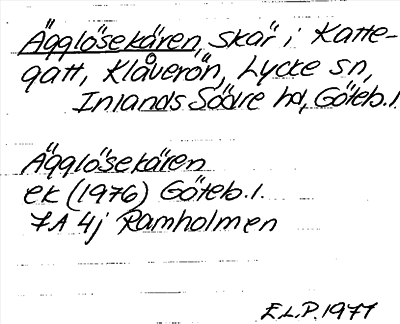 Ägglösekären, skär i Katte-
gatt, Klåverön, Lycke sn,
Inlands Södre hd, Göteb.l.
Ägglösekären
ek (1976) Göteb.l.
7A 4j Ramholmen
E.L.P. 1977